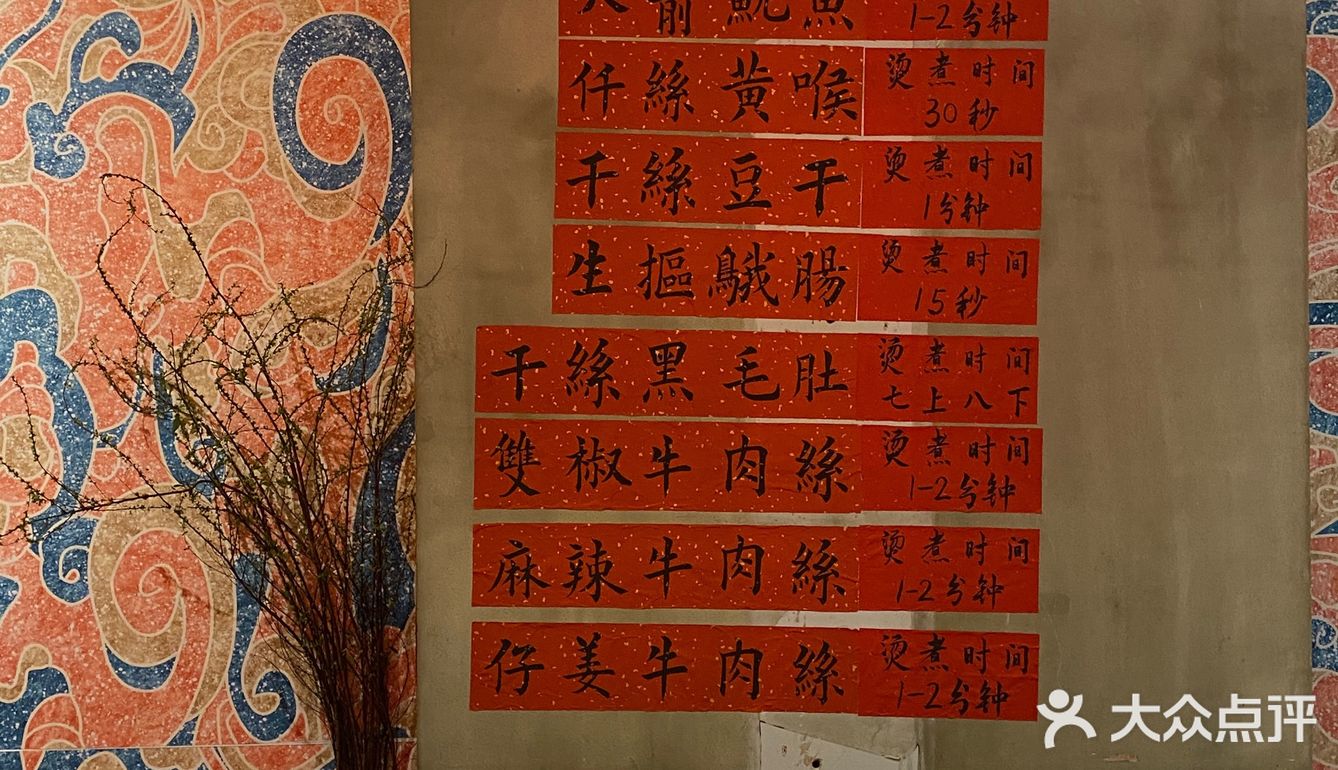 魷魚
1-2分钟
仟絲黃喉
烫煮时间
30秒
干絲豆干
烫煮时间
1分钟
生摳鵝腸
烫煮时间
15秒
干絲黑毛肚
烫煮时间
七上八下
雙椒牛肉絲
烫煮时间
1-2分钟
麻辣牛肉絲
烫煮时间
1-2分钟
仔姜牛肉絲
烫煮时间
1-2分钟
大众点评